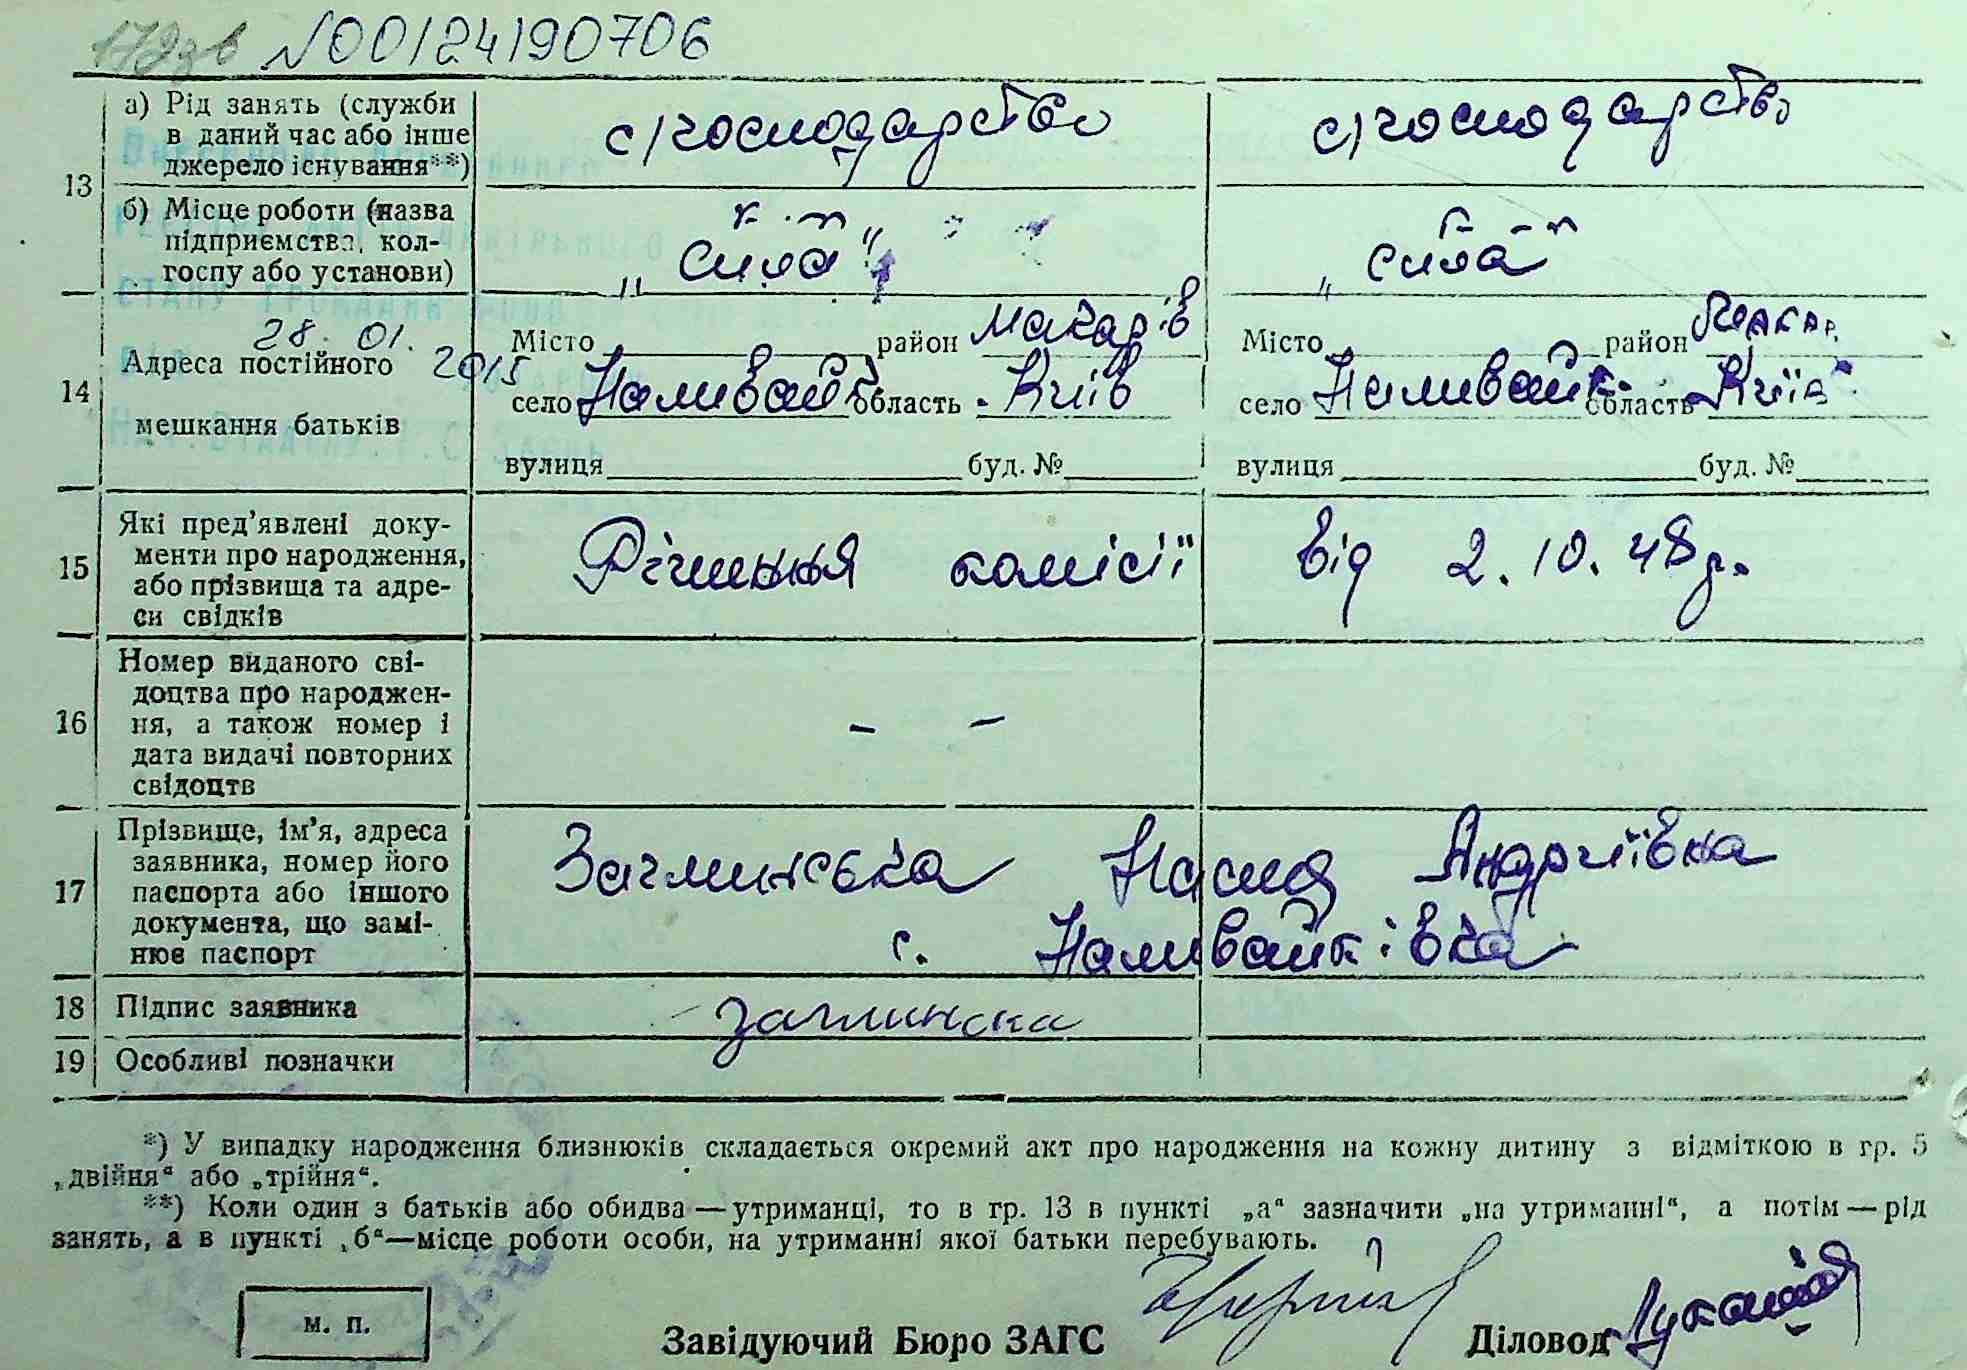 №00124190706
13
а) Рід занять (служби
в даний час або інше
джерело існування**)
с/господарство
с/господарство
б) Місце роботи (назва
підприємства, кол-
госпу або установи)
к-п
„сила"
к-п
„сила"
14
28.01.
2015
Адреса постійного
мешкання батьків
Місто район Макарів
село Наливайк область Київ
вулиця буд. №
Місто район Макар.
село Наливайк. область Київ
вулиця буд. №
15
Які пред'явлені доку-
менти про народження,
або прізвища та адре-
си свідків
Рішення комісії від 2.10.48р.
16
Номер виданого сві-
доцтва про народжен-
ня, а також номер і
дата видачі повторних
свідоцтв
– –
17
Прізвище, ім'я, адреса
заявника, номер його
паспорта або іншого
документа, що замі-
нює паспорт
Заглинська Насия Андріївна
с. Наливайківка
18 Підпис заявника
Заглинска
19 Особливі позначки
*) У випадку народження близнюків складається окремий акт про народження на кожну дитину з відміткою в гр. 5
„двійня“ або „трійня“.
**) Коли один з батьків або обидва — утриманці, то в гр. 13 в пункті „а“ зазначити „на утриманні“, а потім — рід
занять, а в пункті „б“—місце роботи особи, на утриманні якої батьки перебувають.
м. п.
Завідуючий Бюро ЗАГС
Діловод